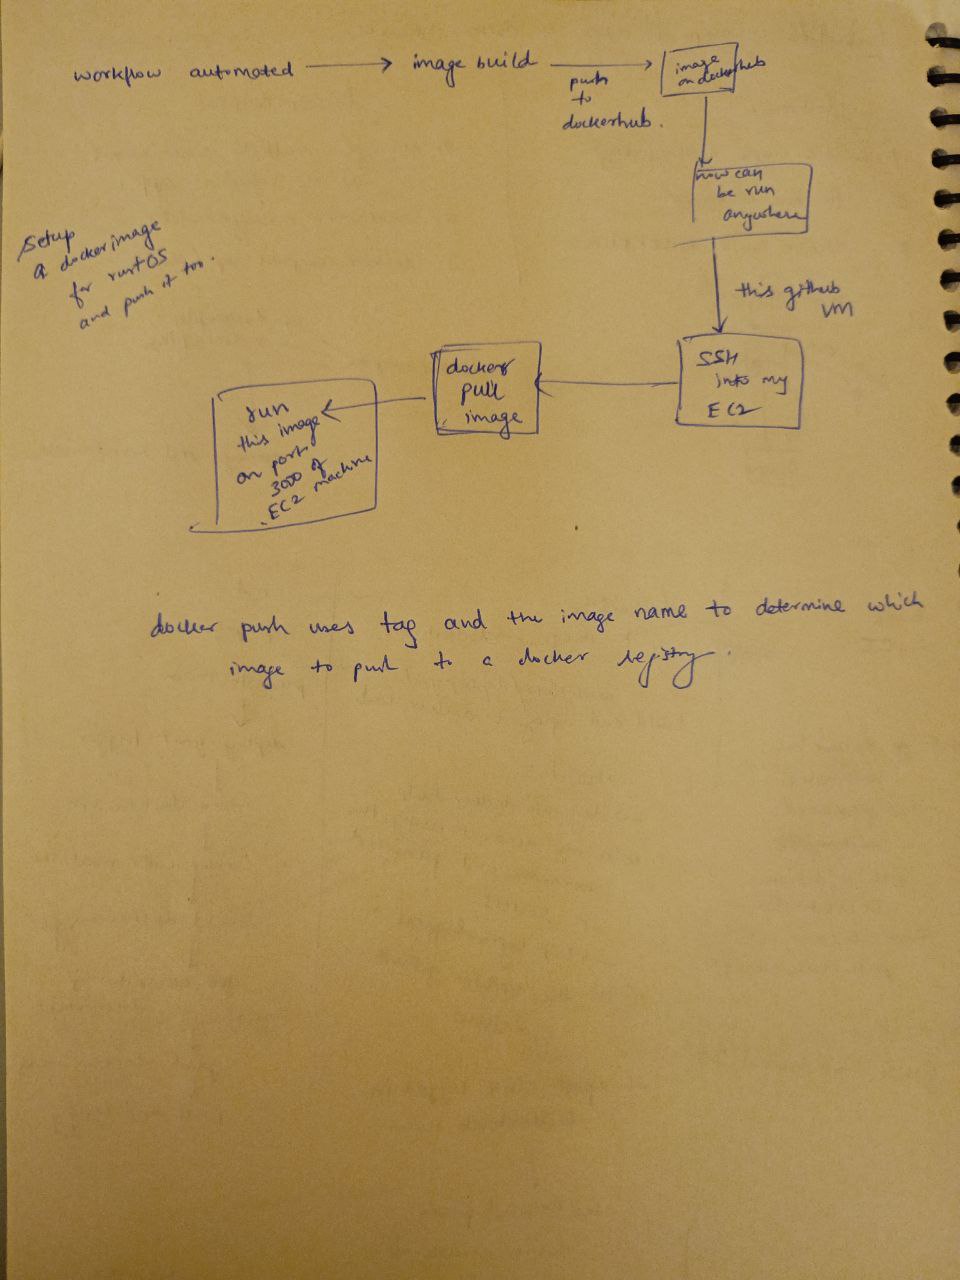 workflow automated
image build
push
to
dockerhub.
image
on dockerhub
now can
be run
anywhere
this github
VM
SSH
into my
EC2
docker
pull
image
run
this image
on port
3000 of
EC2 machine
Setup
a docker image
for rustOS
and push it too.
docker push uses tag and the image name to determine which
image to push to a docker registry.